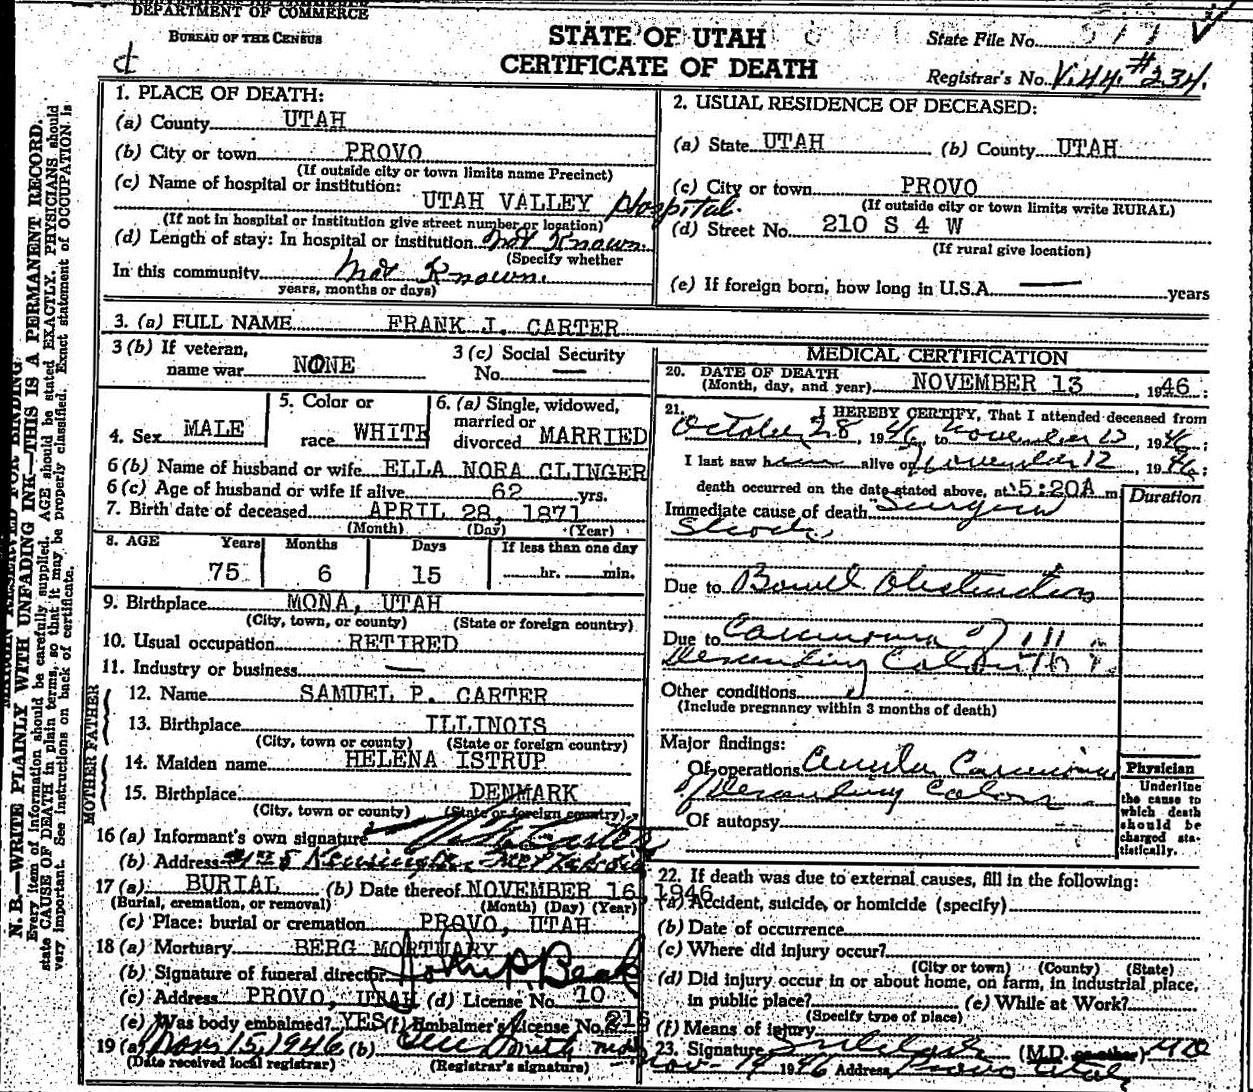 DEPARTMENT OF COMMERCE
BUREAU OF THE CENSUS
STATE OF UTAH
CERTIFICATE OF DEATH
State File No.
Registrar's No. V.44 #234.
N. B.—WRITE PLAINLY WITH UNFADING INK—THIS IS A PERMANENT RECORD.
Every item of information should be carefully supplied. AGE should be stated EXACTLY. PHYSICIANS should
state CAUSE OF DEATH in plain terms, so that it may be properly classified. Exact statement of OCCUPATION is
very important. See instructions on back of certificate.
1. PLACE OF DEATH:
(a) County UTAH
(b) City or town PROVO
(If outside city or town limits name Precinct)
(c) Name of hospital or institution:
UTAH VALLEY Hospital.
(If not in hospital or institution give street number or location)
(d) Length of stay: In hospital or institution Not Known
(Specify whether
In this community Not Known.
years, months or days)
2. USUAL RESIDENCE OF DECEASED:
(a) State UTAH (b) County UTAH
(c) City or town PROVO
(If outside city or town limits write RURAL)
(d) Street No. 210 S 4 W
(If rural give location)
(e) If foreign born, how long in U.S.A. — years
3. (a) FULL NAME FRANK J. CARTER
3 (b) If veteran, name war NONE
3 (c) Social Security No. —
4. Sex MALE
5. Color or race WHITE
6. (a) Single, widowed, married or divorced MARRIED
6 (b) Name of husband or wife ELLA NORA CLINGER
6 (c) Age of husband or wife if alive 62 yrs.
7. Birth date of deceased APRIL 28, 1871
(Month) (Day) (Year)
8. AGE Years Months Days If less than one day
75 6 15 hr. min.
9. Birthplace MONA, UTAH
(City, town, or county) (State or foreign country)
10. Usual occupation RETIRED
11. Industry or business —
FATHER
12. Name SAMUEL P. CARTER
13. Birthplace ILLINOIS
(City, town or county) (State or foreign country)
MOTHER
14. Maiden name HELENA ISTRUP
15. Birthplace DENMARK
(City, town or county) (State or foreign country)
16 (a) Informant's own signature Carter
(b) Address Kensington
17 (a) BURIAL (b) Date thereof NOVEMBER 16 1946
(Burial, cremation, or removal) (Month) (Day) (Year)
(c) Place: burial or cremation PROVO, UTAH
18 (a) Mortuary BERG MORTUARY
(b) Signature of funeral director
(c) Address PROVO, UTAH (d) License No. 70
(e) Was body embalmed? YES (f) Embalmer's License No. 215
19 (a) Nov. 15, 1946 (b)
(Date received local registrar) (Registrar's signature)
MEDICAL CERTIFICATION
20. DATE OF DEATH
(Month, day, and year) NOVEMBER 13, 1946:
21. I HEREBY CERTIFY, That I attended deceased from
October 28, 1946, to November 12, 1946;
I last saw him alive on November 12, 1946;
death occurred on the date stated above, at 5:20A m
Duration
Immediate cause of death Surgical
Shock
Due to Bowel Obstruction
Due to Carcinoma of
Descending Colon
Other conditions
(Include pregnancy within 3 months of death)
Major findings:
Of operations Carcinoma
of Descending Colon
Of autopsy
Physician
Underline
the cause to
which death
should be
charged sta-
tistically.
22. If death was due to external causes, fill in the following:
(a) Accident, suicide, or homicide (specify)
(b) Date of occurrence
(c) Where did injury occur?
(City or town) (County) (State)
(d) Did injury occur in or about home, on farm, in industrial place,
in public place? (e) While at Work?
(Specify type of place)
(f) Means of injury
23. Signature (M.D. or other) MD
Nov- 14 1946 Address Provo Utah